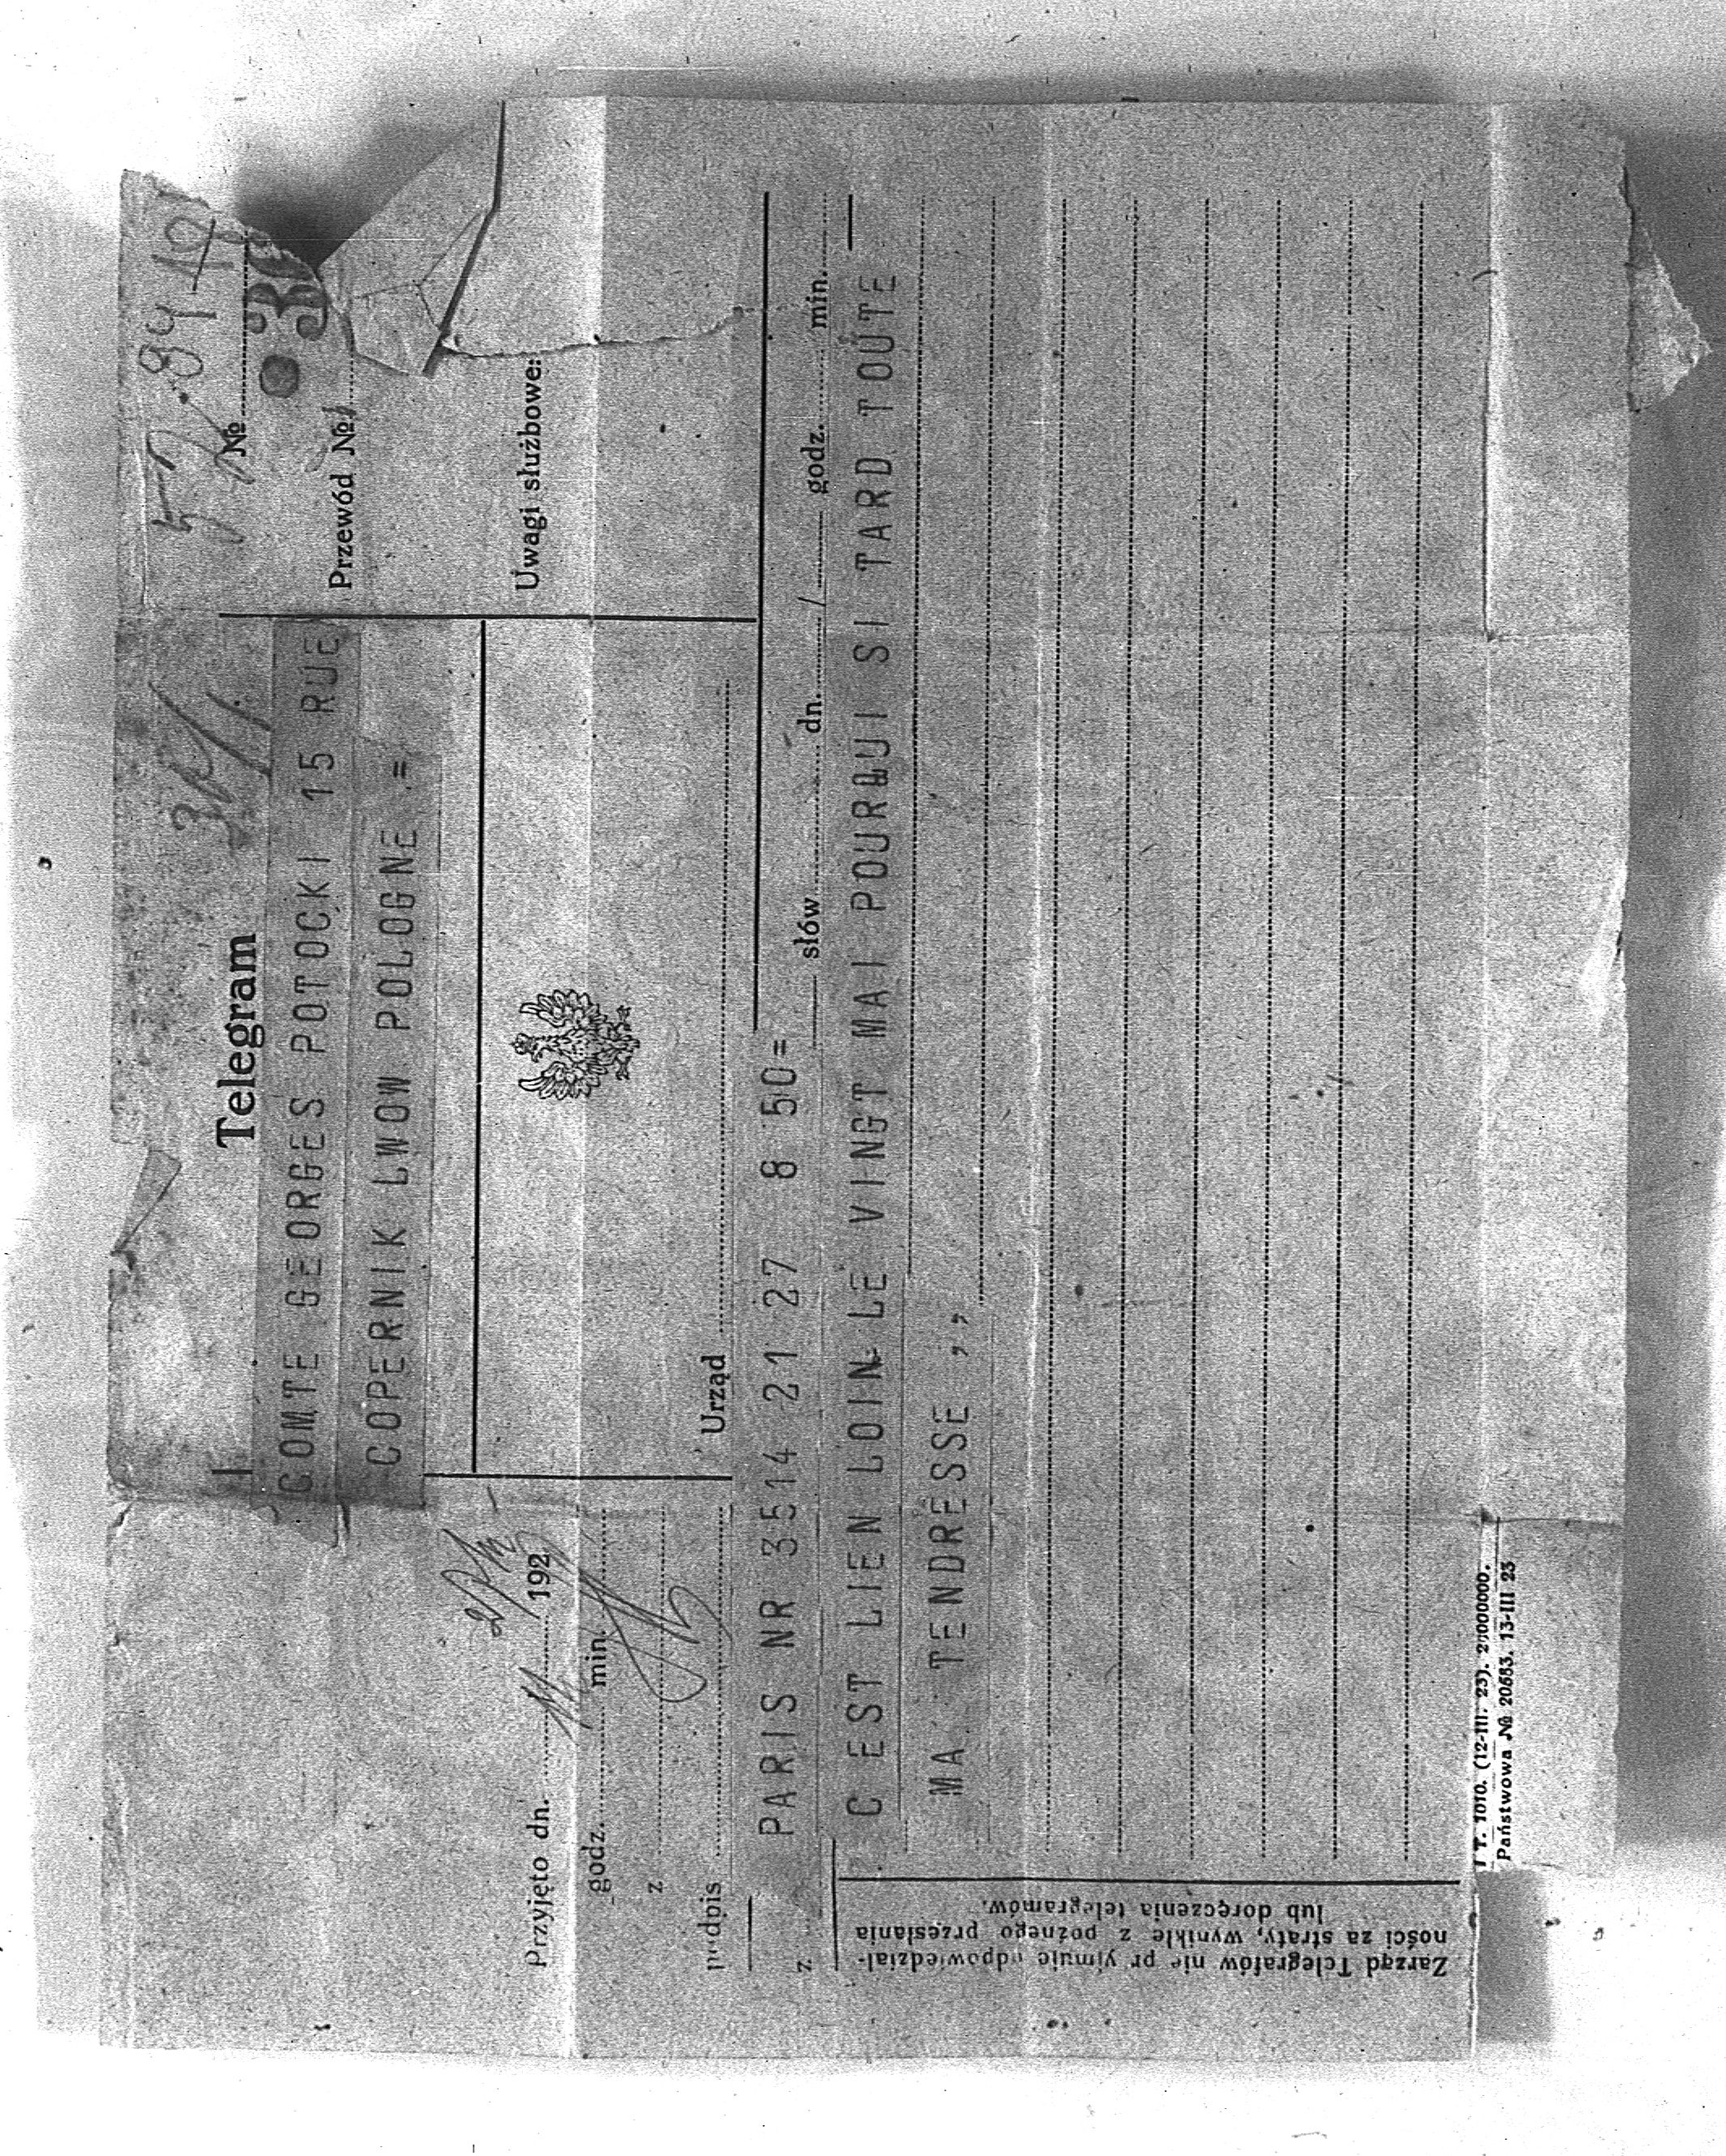 Telegram
COMTE GEORGES POTOCKI 15 RUE
COPERNIK LWOW POLOGNE .=
№
Przewód №
Uwagi służbowe:
Przyjęto dn. 192
godz. min.
z
podpis
Urząd
PARIS NR 3514 21 27 8 50=
z słów dn. / godz. min.
C EST LIEN LOIN LE VINGT MAI POURQUI SI TARD TOUTE
MA TENDRESSE ,,
Zarząd Telegrafów nie pr yimuie odpowiedzial-
ności za straty, wynikłe z poźnego przesłania
lub doręczenia telegramów.
T. 1010. (12-III. 23). 2000000.
Państwowa № 20683. 13-III 23